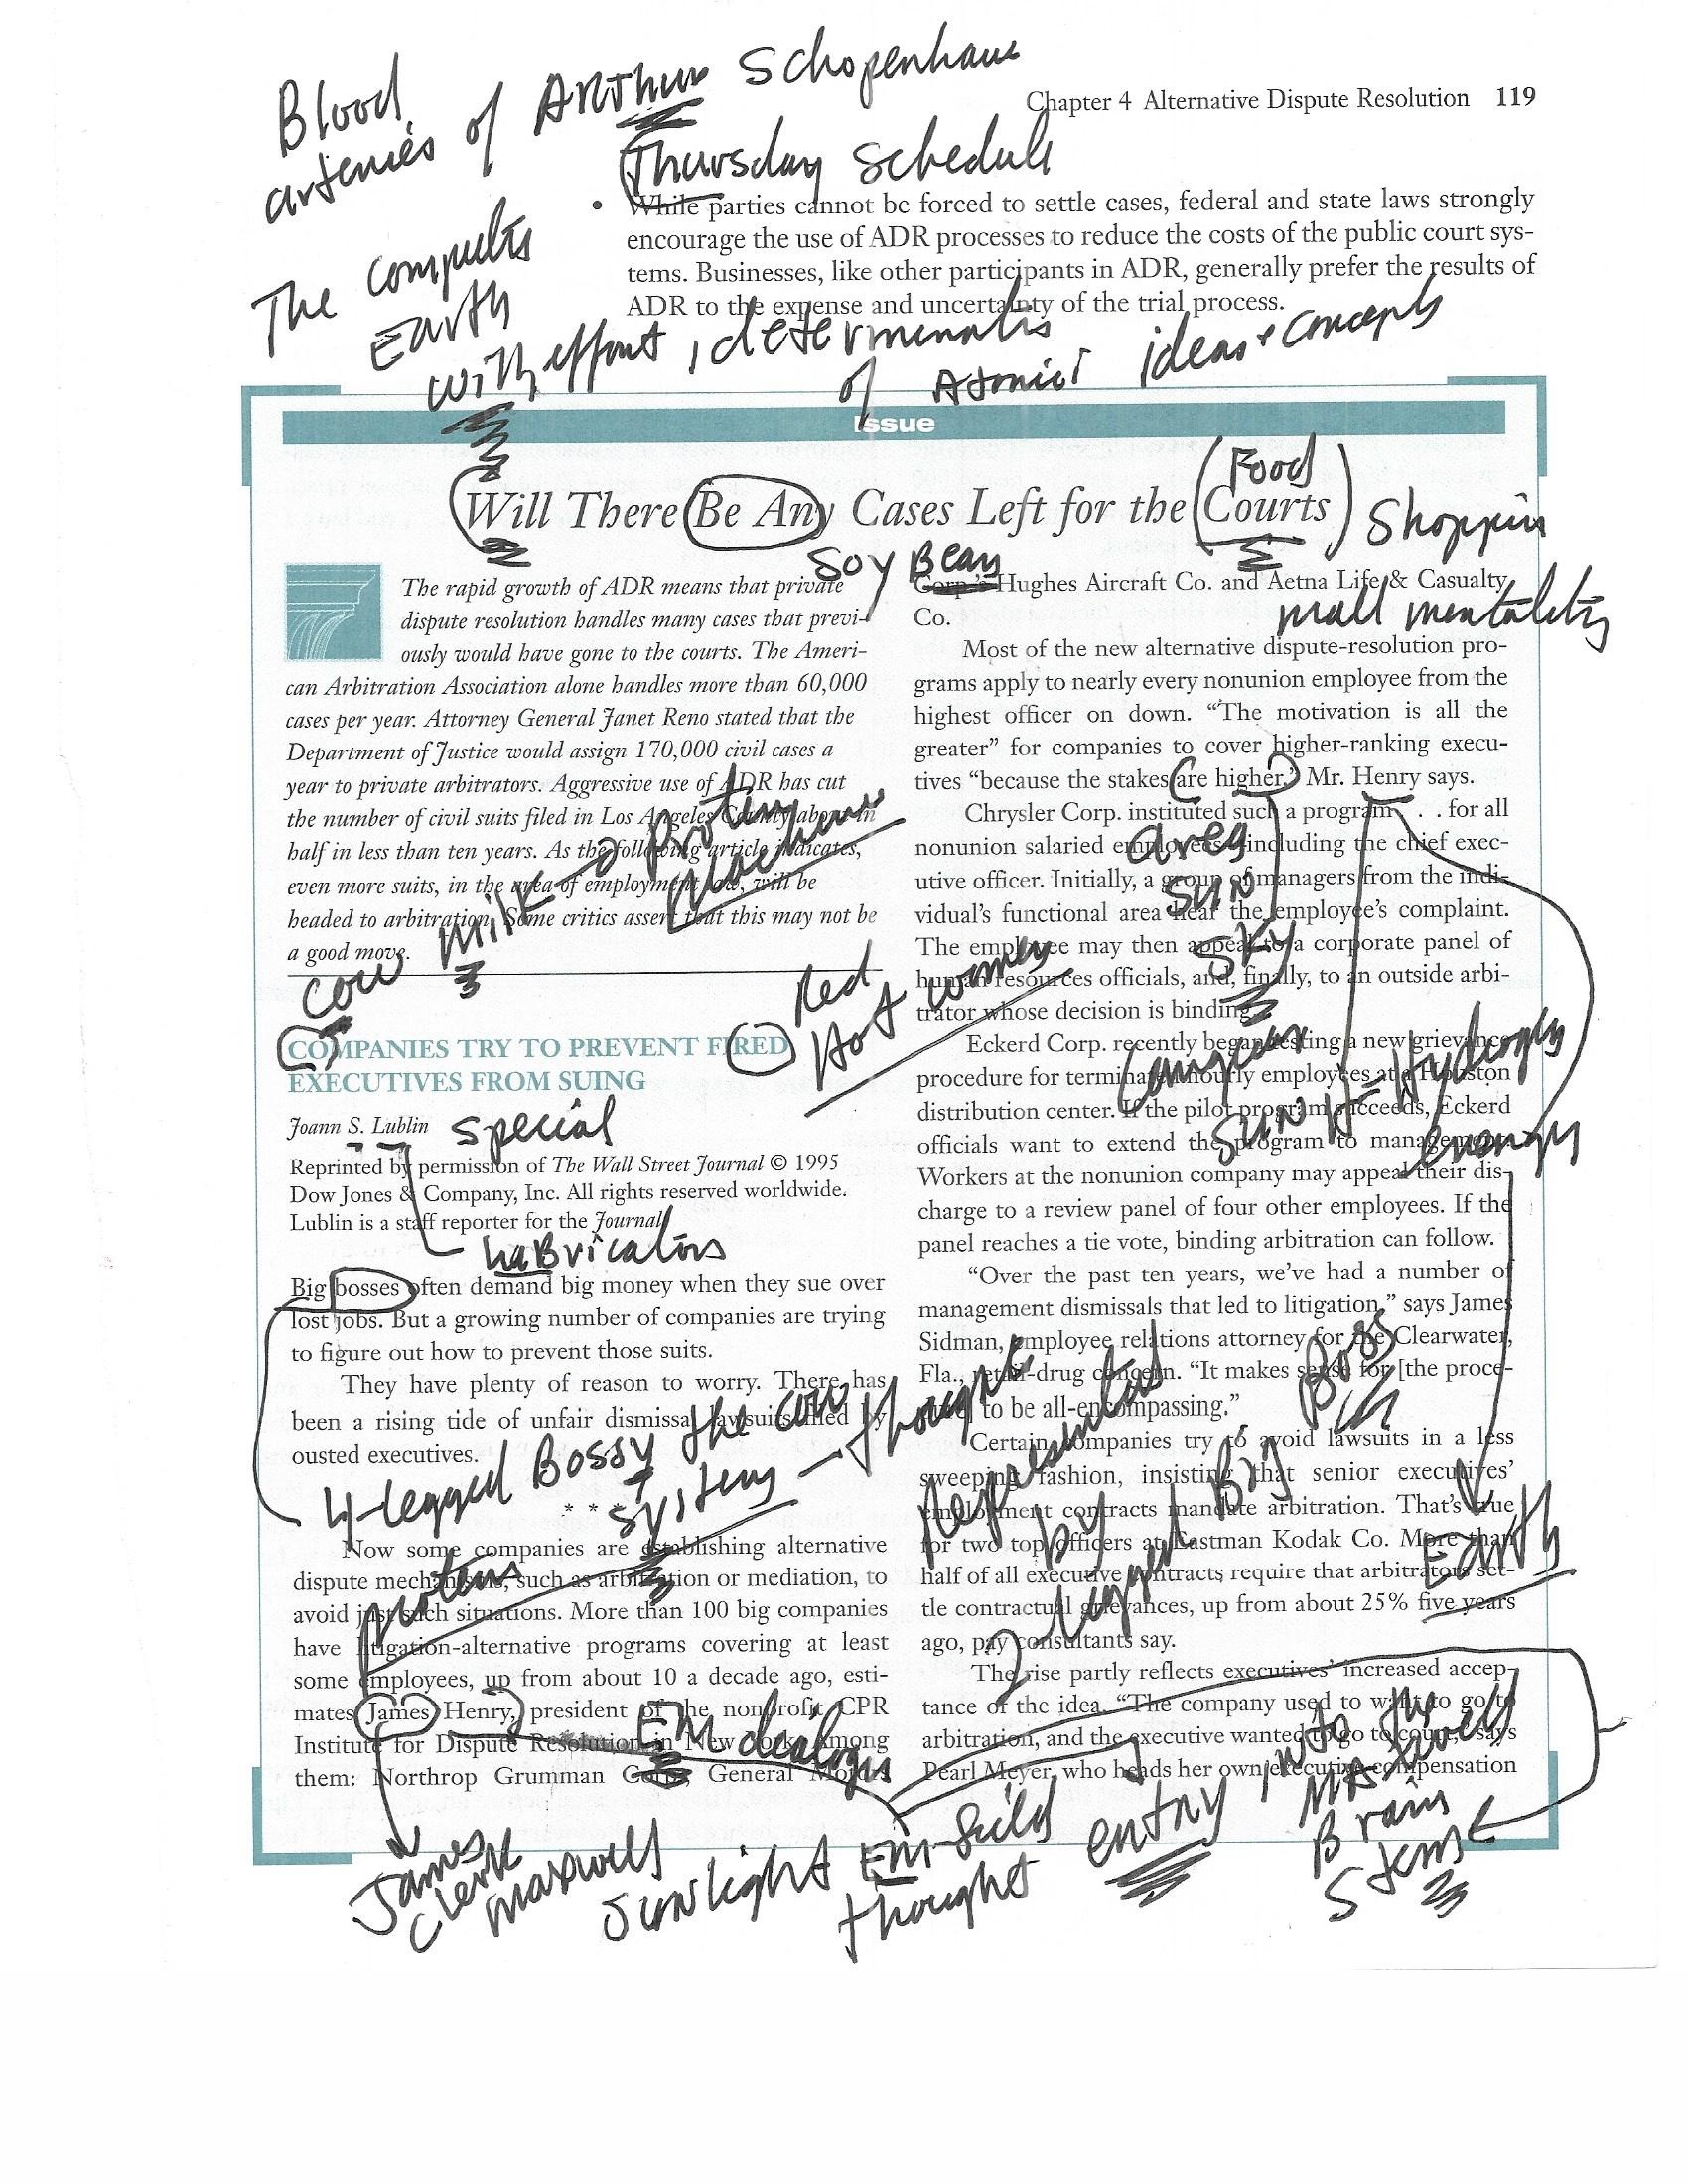 Blood
arteries of ARthur Schopenhaur
Chapter 4 Alternative Dispute Resolution 119
Thursday schedule
• While parties cannot be forced to settle cases, federal and state laws strongly
encourage the use of ADR processes to reduce the costs of the public court sys-
tems. Businesses, like other participants in ADR, generally prefer the results of
ADR to the expense and uncertainty of the trial process.
The
Earth
with effort,
of Atomic ideas + concepts
Issue
Will There Be Any Cases Left for the Courts
(Food)
Shoppin
mall mentality
Soy Bean
The rapid growth of ADR means that private
dispute resolution handles many cases that previ-
ously would have gone to the courts. The Ameri-
can Arbitration Association alone handles more than 60,000
cases per year. Attorney General Janet Reno stated that the
Department of Justice would assign 170,000 civil cases a
year to private arbitrators. Aggressive use of ADR has cut
the number of civil suits filed in Los Angeles County about in
half in less than ten years. As the following article indicates,
even more suits, in the area of employment law, will be
headed to arbitration. Some critics assert that this may not be
a good move.
cow milk → protein
COMPANIES TRY TO PREVENT FIRED
EXECUTIVES FROM SUING
Red
Hot women
Joann S. Lublin
special
Reprinted by permission of The Wall Street Journal © 1995
Dow Jones & Company, Inc. All rights reserved worldwide.
Lublin is a staff reporter for the Journal.
Big bosses often demand big money when they sue over
lost jobs. But a growing number of companies are trying
to figure out how to prevent those suits.
They have plenty of reason to worry. There has
been a rising tide of unfair dismissal lawsuits filed by
ousted executives.
4-legged Bossy the cow
systems - thought
* * *
Now some companies are establishing alternative
dispute mechanisms, such as arbitration or mediation, to
avoid just such situations. More than 100 big companies
have litigation-alternative programs covering at least
some employees, up from about 10 a decade ago, esti-
mates James Henry, president of the nonprofit CPR
Institute for Dispute Resolution in New York. Among
them: Northrop Grumman Corp., General Motors
Corp.'s Hughes Aircraft Co. and Aetna Life & Casualty
Co.
Most of the new alternative dispute-resolution pro-
grams apply to nearly every nonunion employee from the
highest officer on down. “The motivation is all the
greater” for companies to cover higher-ranking execu-
tives “because the stakes are higher,” Mr. Henry says.
Chrysler Corp. instituted such a program . . . for all
nonunion salaried employees—including the chief exec-
utive officer. Initially, a group of managers from the indi-
vidual's functional area hear the employee's complaint.
The employee may then appeal to a corporate panel of
human resources officials, and, finally, to an outside arbi-
trator whose decision is binding.
area
SUN
SKY
Eckerd Corp. recently began testing a new grievance
procedure for terminated hourly employees at a Houston
distribution center. If the pilot program succeeds, Eckerd
officials want to extend the program to management.
Workers at the nonunion company may appeal their dis-
charge to a review panel of four other employees. If the
panel reaches a tie vote, binding arbitration can follow.
SUN H = Hydrogen
energy
“Over the past ten years, we've had a number of
management dismissals that led to litigation,” says James
Sidman, employee relations attorney for the Clearwater,
Fla., retail-drug concern. “It makes sense for [the proce-
to be all-encompassing.”
Certain companies try to avoid lawsuits in a less
sweeping fashion, insisting that senior executives'
employment contracts mandate arbitration. That's true
for two top officers at Eastman Kodak Co. More than
half of all executive contracts require that arbitrators set-
tle contractual grievances, up from about 25% five years
ago, pay consultants say.
Represented
by
2 legged Big Boss
Earth
The rise partly reflects executives' increased accep-
tance of the idea. “The company used to want to go to
arbitration, and the executive wanted to go to court,” says
Pearl Meyer, who heads her own executive-compensation
James
Clerk
Maxwell
sunlight EM-field
thought entry into the
Brain
Stem